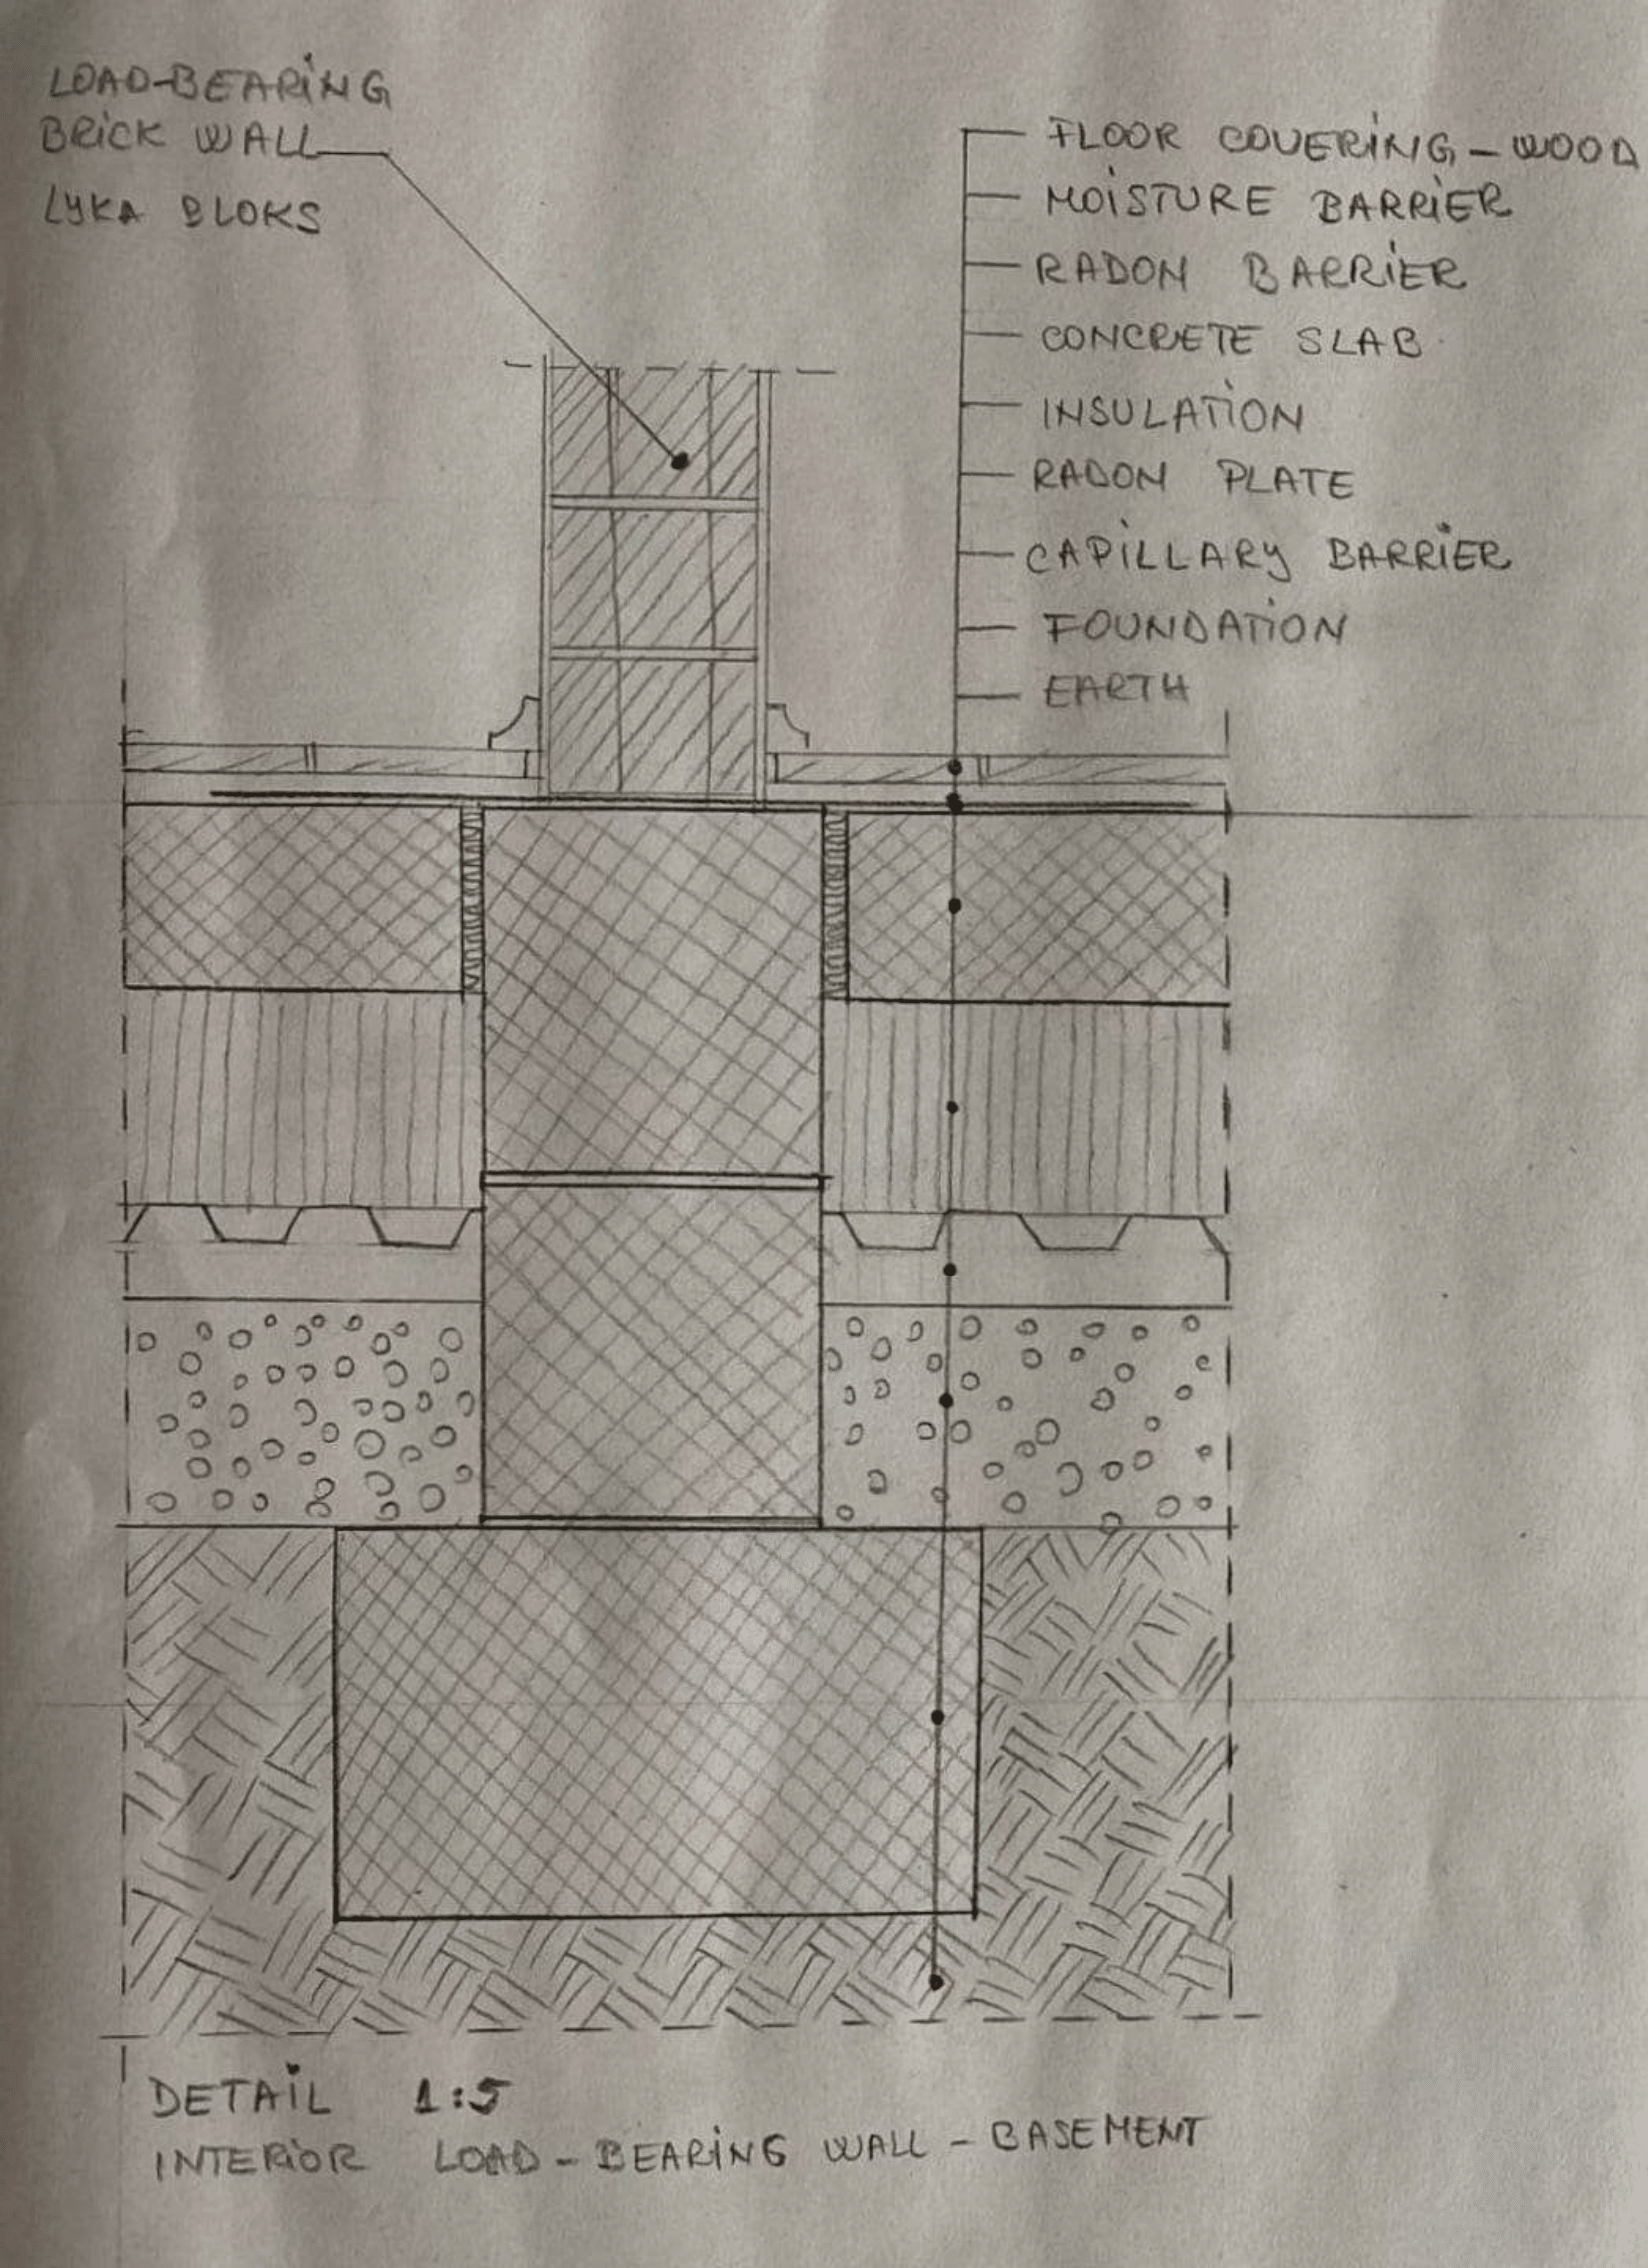 LOAD-BEARING
BRICK WALL
LYKA BLOKS
FLOOR COVERING - WOOD
MOISTURE BARRIER
RADON BARRIER
CONCRETE SLAB
INSULATION
RADON PLATE
CAPILLARY BARRIER
FOUNDATION
EARTH
DETAIL 1:5
INTERIOR LOAD-BEARING WALL - BASEMENT